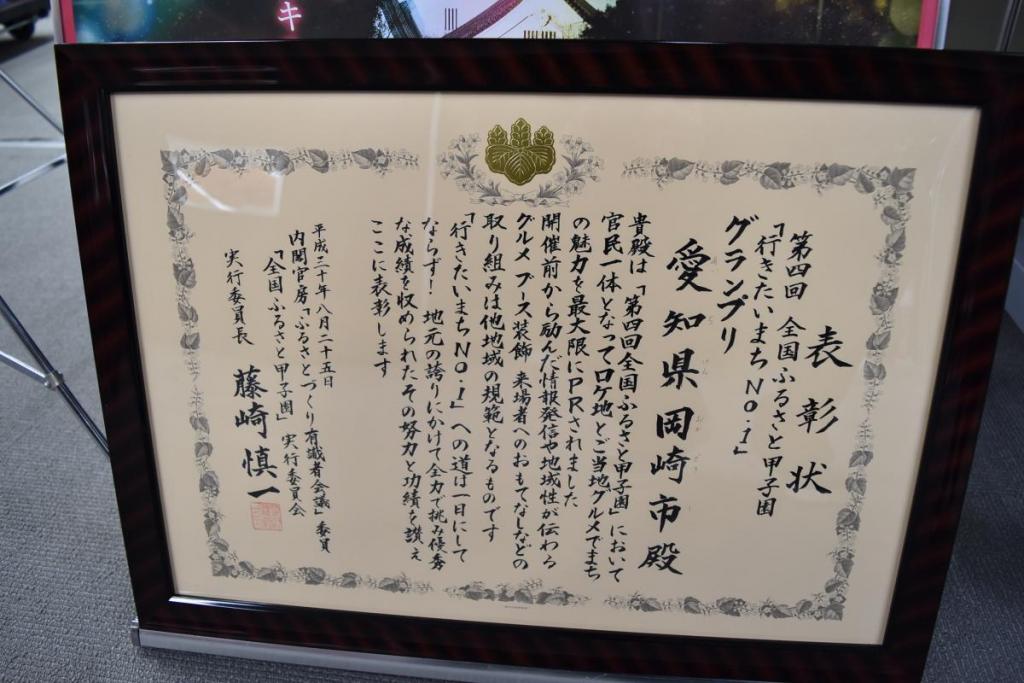 キ
表彰状
第四回 全国ふるさと甲子園
「行きたいまちNO.1」
グランプリ
愛知県岡崎市殿
貴殿は「第四回全国ふるさと甲子園」において
官民一体となってロケ地とご当地グルメでまち
の魅力を最大限にPRされました
開催前から励んだ情報発信や地域性が伝わる
グルメブース装飾 来場者へのおもてなしなどの
取り組みは他地域の規範となるものです
「行きたいまちNO.1」への道は一日にして
ならず! 地元の誇りにかけて全力で挑み優秀
な成績を収められたその努力と功績を讃え
ここに表彰します
平成三十年八月二十五日
内閣官房「ふるさとづくり有識者会議」委員
「全国ふるさと甲子園」実行委員会
実行委員長 藤崎慎一